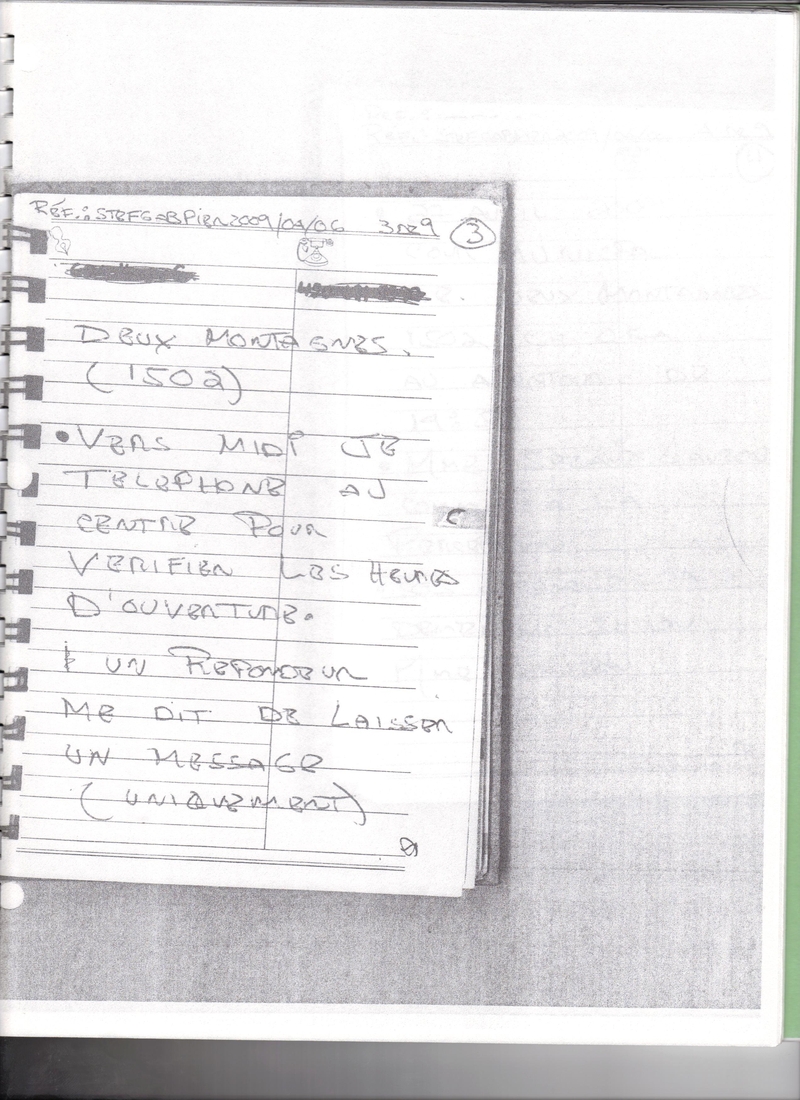 RÉF.: STEFGABPIER2009/04/06 3 DE 9 ③
DEUX MONTAGNES.
(1502)
• VERS MIDI JE
TELEPHONE AU
CENTRE POUR
VERIFIER LES HEURES
D'OUVERTURE.
UN REPONDEUR
ME DIT DE LAISSER
UN MESSAGE
(UNIQUEMENT)